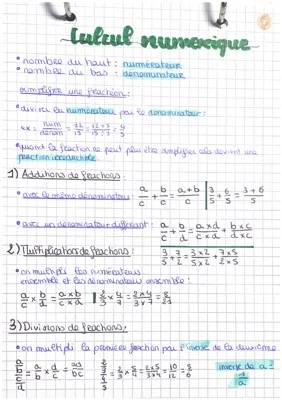 Calcul numérique
• nombre du haut : numérateur
• nombre du bas : dénominateur
simplifier une fraction :
• diviser le numérateur par le dénominateur :
ex = num/dénom = 12/15 = 12÷3/15÷3 = 4/5
• quand la fraction ne peut plus être simplifiée cela devient une
fraction irréductible
1) Additions de fractions :
• avec le même dénominateur : a/c + b/c = a+b/c | 3/5 + 6/5 = 3+6/5
• avec un dénominateur différent : a/c + b/d = a×d/c×d + b×c/d×c
3/5 + 7/2 = 3×2/5×2 + 7×5/2×5
2) Multiplications de fractions :
• on multiplie les numérateurs
ensemble et les dénominateurs ensemble :
a/c × b/d = a×b/c×d | 2/3 × 4/7 = 2×4/3×7 = 8/21
3) Divisions de fractions :
• on multiplie la première fraction par l'inverse de la deuxième
a/b / c/d = a/b × d/c = ad/bc | 2/3 / 4/5 = 2/3 × 5/4 = 2×5/3×4 = 10/12 = 5/6
inverse de a =
1/a